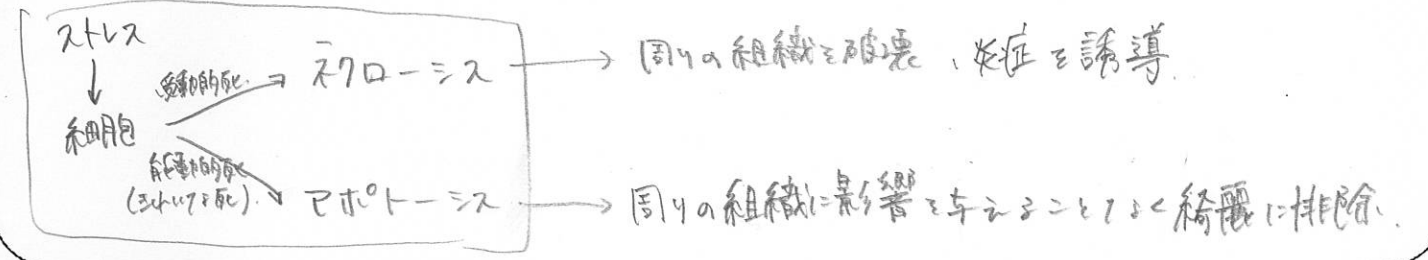 ストレス
↓
細胞
受動的死
→ ネクローシス → 周りの組織を破壊、炎症を誘導
能動的死
(きれいな死)
→ アポトーシス → 周りの組織に影響を与えることなく綺麗に排除。